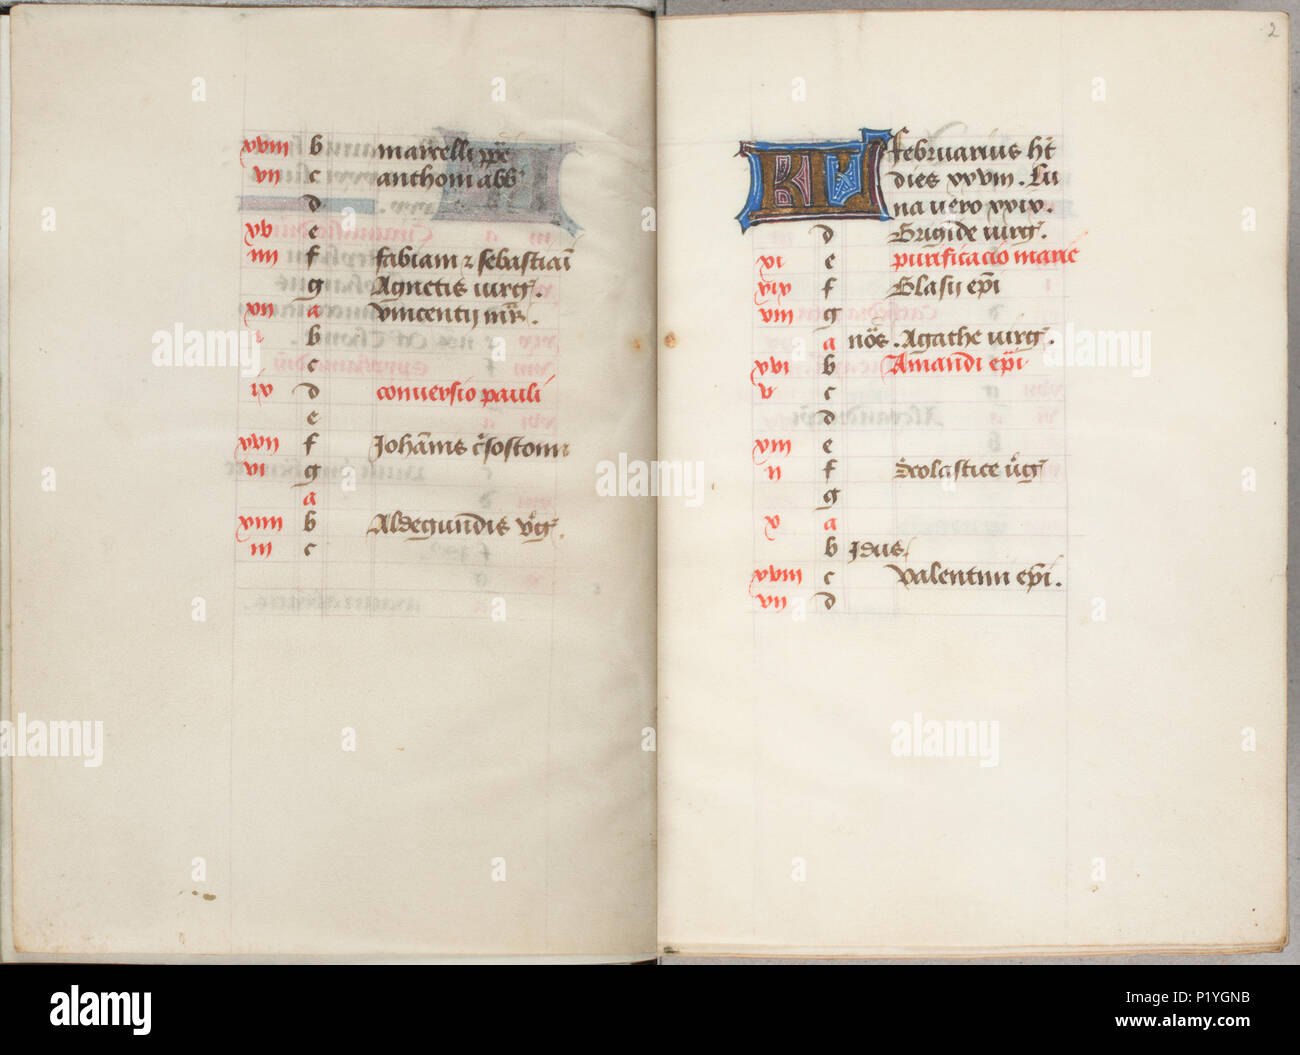 xviii b marcelli p̄pe
vii c anthoni abb'
d
xv e
iiii f fabiani ⁊ sebastiani
g Agnetis virg.
xii a vincentii mr̄.
i b
c
ix d conversio pauli
e
xvii f Johān̄is c'sostomi
vi g
a
xiiii b Aldegundis v'g.
iii c
2
KL februarius ht
dies xxviii. Lu
na vero xxix.
d Brigide virg.
xi e purificacio marie
xix f Blasii ep̄i
viii g
a nōs. Agathe virg.
xvi b Amandi ep̄i
v c
d
xiii e
ii f Scolastice v'g
g
x a
b Idus.
xviii c valentini ep̄i.
vii d
alamy
alamy
Image ID: P1YGNB
www.alamy.com